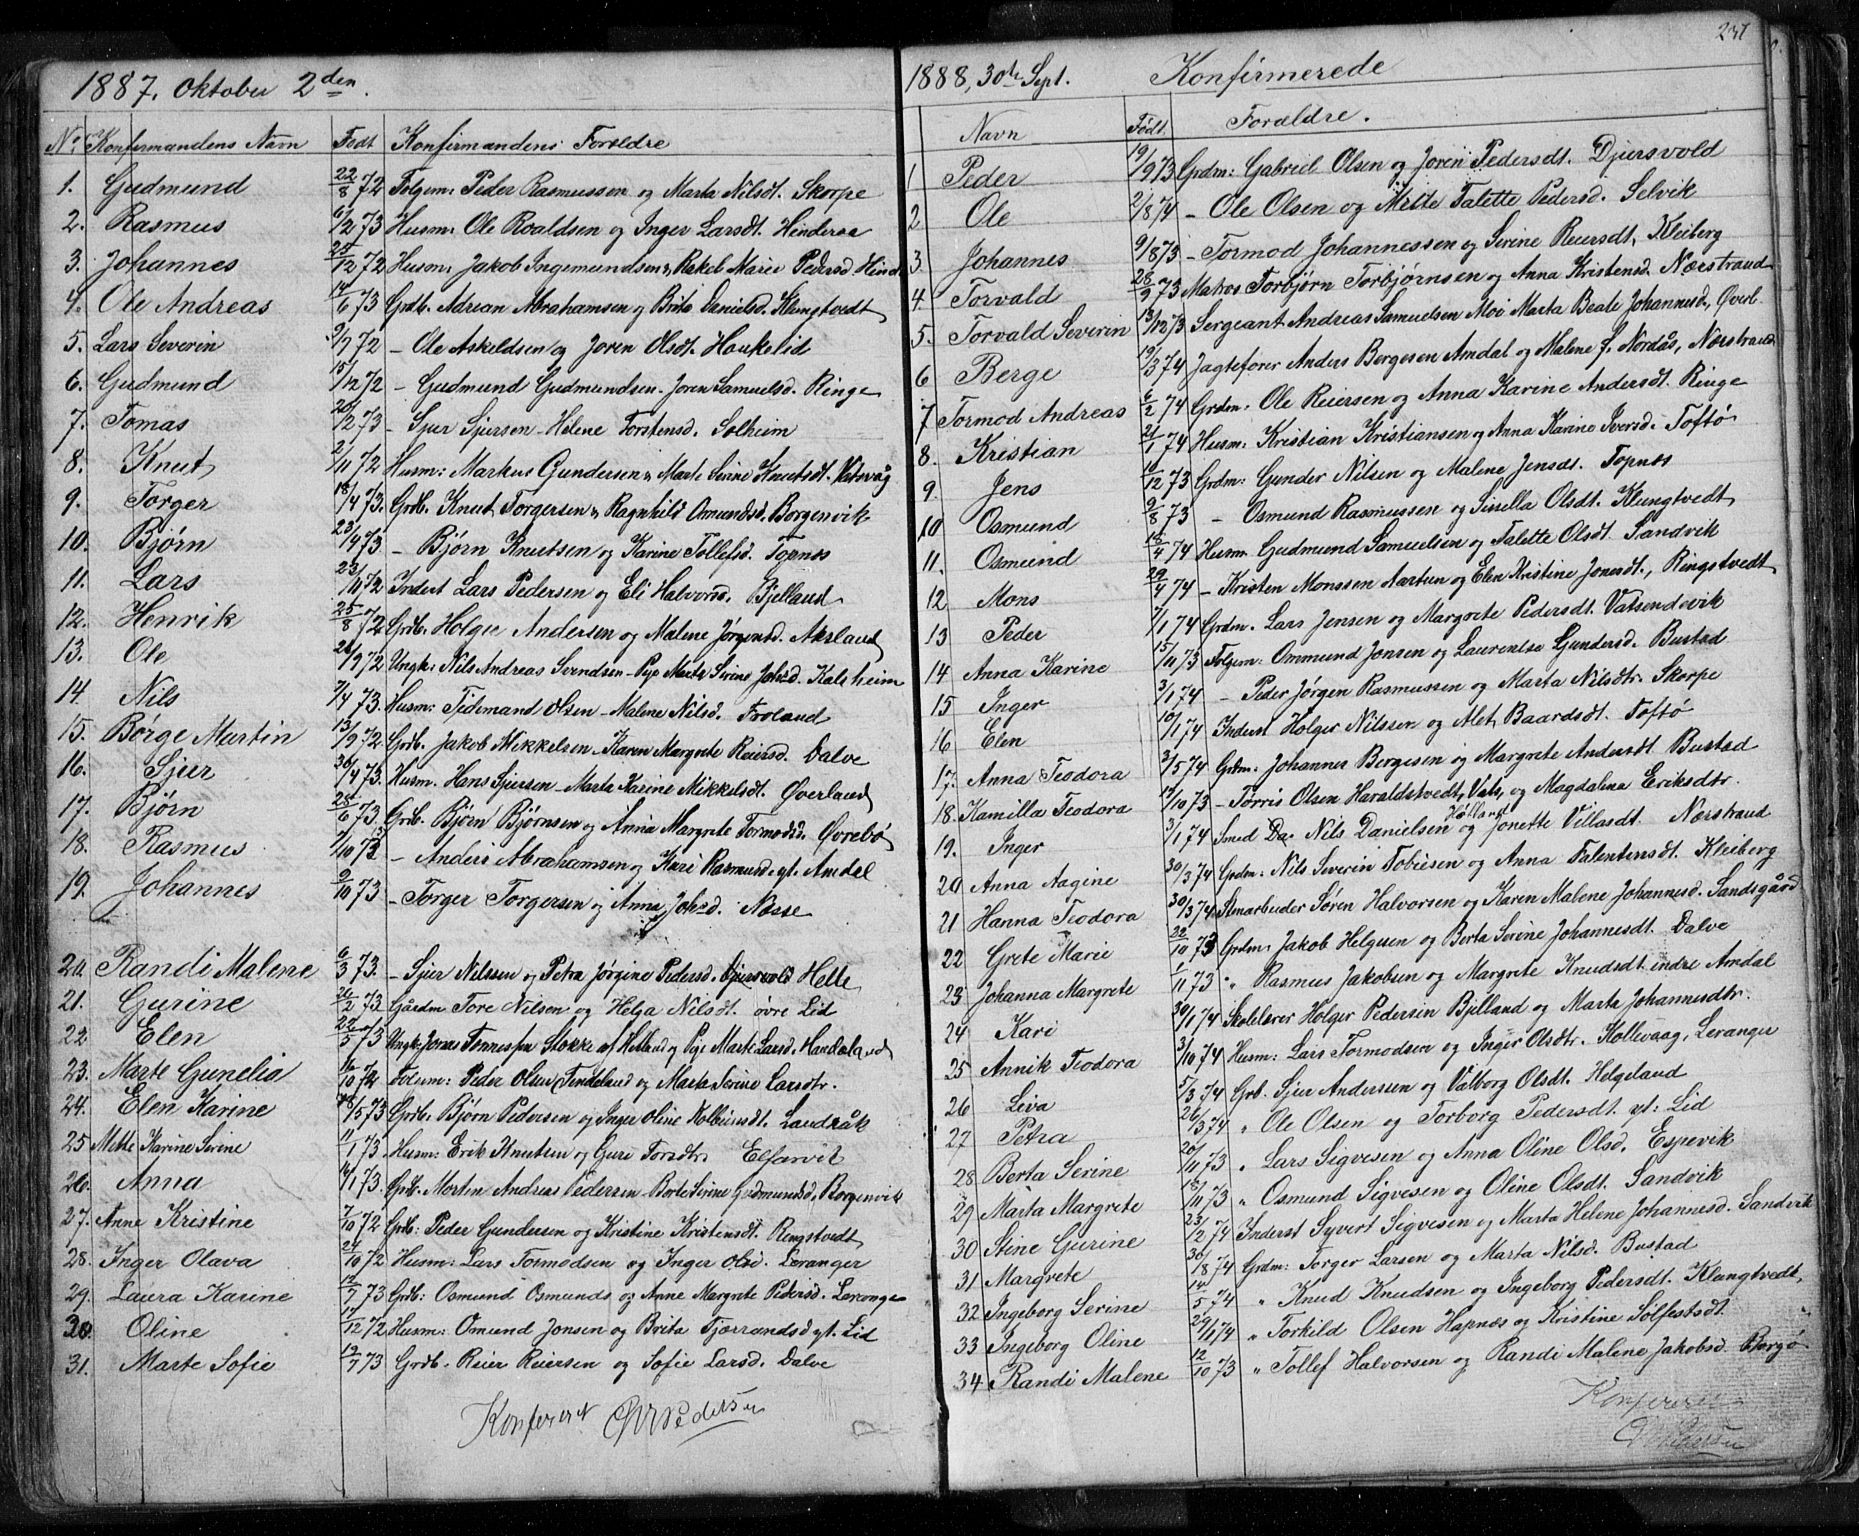 1887. Oktober 2den.
No. Konfirmandens Navn Født Konfirmandens Forældre
1. Gudmund 22/8 72 Folgem: Peder Rasmussen og Marta Nilsdt. Skorpe
2. Rasmus 6/2 73 Husm: Ole Roaldsen og Inger Larsdt. Hinderaa
3. Johannes 25/12 72 Husm: Jakob Ingemundsen, Rakel Marie Pedersd Hind
4. Ole Andreas 14/6 73 Grdb. Adrian Abrahamsen og Brita Danielsd. Klungtvedt
5. Lars Severin 9/7 72 - Ole Askeldsen og Joren Olsdt. Haukelid
6. Gudmund 15/12 72 - Gudmund Gudmundsen - Joren Samuelsd. Ringe
7. Tomas 20/12 73 - Sjur Sjursen - Helene Torstensd. Solheim
8. Knut 2/11 72 Husm: Markus Gundersen, Marte Serine Knutsdt. Vatsvåg
9. Torger 18/4 73. Grdb. Knut Torgersen, Ragnhild Omundsd. Borgenvik
10. Bjørn 23/4 73 - Bjørn Knutsen og Karine Tollefsd. Topnes
11. Lars 23/10 72 Inderst Lars Pedersen og Eli Halvorsd. Bjelland
12. Henrik 25/8 72 Grdb. Holger Andersen og Malene Jørgensd. Aksland
13. Ole 26/9 72 Ungk: Nils Andreas Svendsen - Pige Marta Serine Johsd. Kalsheim
14. Nils 7/4 73. Husm: Tidemand Olsen - Malene Nilsd. Frøland
15. Børge Martin 13/9 72 Grdb. Jakob Mikkelsen - Karen Margrete Reiersd. Dalve
16. Sjur 30/4 73. Husm: Hans Sjursen - Marta Karine Mikkelsdt. Øverland
17. Bjørn 28/6 73. Grdb. Bjørn Bjørnsen og Anna Margrete Tormodsd. Øvrebø
18. Rasmus 7/10 73 - Anders Abrahamsen og Kari Rasmusd. yt. Amdal
19. Johannes 9/10 73 - Torger Torgersen og Anna Johsd. Næsse
20 Randi Malene 6/3 73. - Sjur Nilssen og Petra Jørgine Pedersd. Djursvold Helle
21. Gurine 26/2 73 Gårdm Tore Nilsen og Helga Nilsdt. øvre Lid
22 Elen 22/5 73 Ungk: Jonas Tønnessen Stokke af Hetland og Pige Marte Larsd. Handeland
23. Marte Gunelia 16/10 72 Folum: Peder Olsen Tindeland og Marta Serine Larsdtr.
24. Elen Karine /5 73 Grdb. Bjørn Pedersen og Inger Oline Kolbeinsdt. Landråk
25 Mette Karine Serine 11/1 73. Husm: Erik Knutsen og Guri Torsdtr. Elfarvik
26. Anna 14/1 73. Grdb. Morten Andreas Pedersen Berte Serine Gudmundsd. Borgenvik
27. Anne Kristine 7/10 72 Grdb: Peder Gundersen og Kristine Kristensdt. Ringstvedt
28. Inger Olava 24/10 72 Husm: Lars Tormodsen og Inger Olsd. Leranger
29. Laura Karine 12/7 73 Grdb: Osmund Osmunds og Anne Margrete Pedersd. Lekonge
30. Oline 17/12 72 Husm: Omund Jonsen og Brita Tjærandsd yt. Lid
31. Marte Sofie 12/7 73 Grdb. Reier Reiersen og Sofie Larsd. Dalve
Konfereret Pedersen
237
1888, 30te Sept. Konfirmerede
Navn Født Forældre.
1 Peder 19/9 73 Grdm: Gabriel Olsen og Joren Pedersdt. Djursvold
2 Ole 2/8 74 - Ole Olsen og Mette Talette Pedersd. Selvik
3. Johannes 9/8 73 - Tormod Johannessen og Serine Reiersdt, Kleiberg
4. Torvald 28/9 73 Matros Torbjørn Torbjørnsen og Anna Kristensd. Nærstrand
5. Torvald Severin 13/12 73 Sergeant Andreas Samuelsen Moi Marta Beate Johannesd, Øverl.
6 Berge 19/3 74 Jagtefører Anders Bergesen Amdal og Malene f. Nordås, Nærstrand
7 Tormod Andreas 6/2 74 Grdm: Ole Reiersen og Anna Karine Andersdt. Ringe
8. Kristian 21/1 74 Husm: Kristian Kristiansen og Anna Karine Iversd. Toftø
9. Jens 10/12 73 Grdm: Gunder Nilsen og Malene Jensdt. Topnes
10 Osmund 9/8 73 - Osmund Rasmussen og Sisella Olsdt. Klungtvedt
11. Osmund 18/4 74 Husm. Gudmund Samuelsen og Talette Olsdt. Sandvik
12 Mons 29/4 74 - Kristen Monssen Aartun og Elen Kristine Jonasdt., Ringstvedt
13 Peder 7/1 74 Grdm. Lars Jensen og Margrete Pedersdt. Vatsendvik
14 Anna Karine 15/10 73 Folgem: Ommund Jonsen og Laurentse Gundersd. Bustad
15 Inger 3/1 74 - Peder Jørgen Rasmussen og Marta Nilsdtr. Skorpe
16 Elen 10/1 74 Inderst Holger Nilssen og Alet Baardsdt. Toftø
17. Anna Teodora 3/5 74 Grdm: Johannes Bergesen og Margrete Andersdt Bustad
18. Kamilla Teodora 12/10 73 - Tørris Olsen Haraldstvedt, Vats, og Magdalena Eriksdtr.
19. Inger 3/1 74 Smed Da. Nils Danielsen Høiland og Jonette Villasdt. Nærstrand
20 Anna Aagine 30/3 74 Grdm: Nils Severin Tobiesen og Anna Talentinsdt. Kleiberg
21 Hanna Teodora 30/3 74 Stenarbeider Søren Halvorsen og Karen Malene Johannesd. Sandsgård
22 Grete Marie 22/10 73 Grdm: Jakob Helgesen og Berta Serine Johannesdt. Dalve
23 Johanna Margrete 1/11 73 " Rasmus Jakobsen og Margrete Knudsdt. indre Amdal
24 Kari 30/1 74 Skolelærer Holger Pedersen Bjelland og Marta Johannesdtr.
25 Annik Teodora 3/10 74 Husm: Lars Tormodsen og Inger Olsdtr. Kollevaag, Leranger
26 Liva 5/3 74 Grb. Sjur Andersen og Valborg Olsdt. Helgeland
27 Petra 26/3 74 " Ole Olsen og Torborg Pedersdt. yt: Lid
28 Berta Serine 20/11 73 " Lars Sigvesen og Anna Oline Olsd. Espevik
29 Marta Margrete 18/11 73 " Osmund Sigvesen og Oline Olsdt. Sandvik
30 Stine Gurine 23/12 74 Inderst Syvert Sigvesen og Marta Helene Johannesd. Sandvik
31 Margrete 30/8 74 Grdm: Torger Larsen og Marta Nilsd. Bustad
32 Ingeborg Serine 14/5 74 " Knud Knudsen og Ingeborg Pedersdt. Klungtvedt,
33 Ingeborg Oline 29/1 74 " Torkild Olsen Hapnæs og Kristine Solfestsdt.
34 Randi Malene 12/10 73 " Tollef Halvorsen og Randi Malene Jakobsd. Borgø
Konfereret
Pedersen